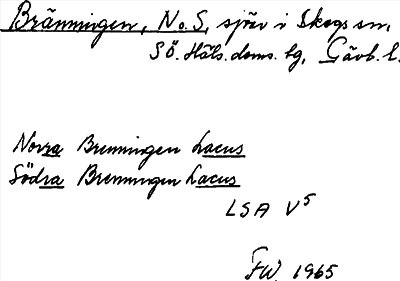 Bränningen, N o. S, sjöar i Skogs sn,
Sö. Häls. doms. lg, Gävb. l.
Norra Brenningen Lacus
Södra Brenningen Lacus
LSA V5
FW. 1965